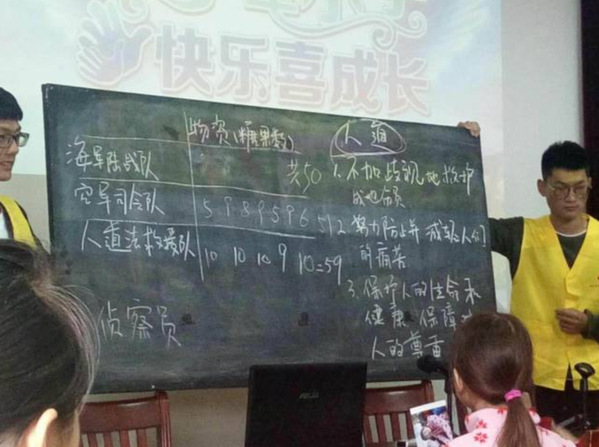 快乐喜成长
物资(糖果数)
人道
海军陆战队
共50
1.不加歧视地救护
战地伤员
空军司令队
5 9 8 9 5 9 6 5 12
2 努力防止并减轻人们
的痛苦
人道法救援队
10 10 10 9 10=59
3.保护人的生命和
健康 保障
人的尊重
侦察员
ASUS